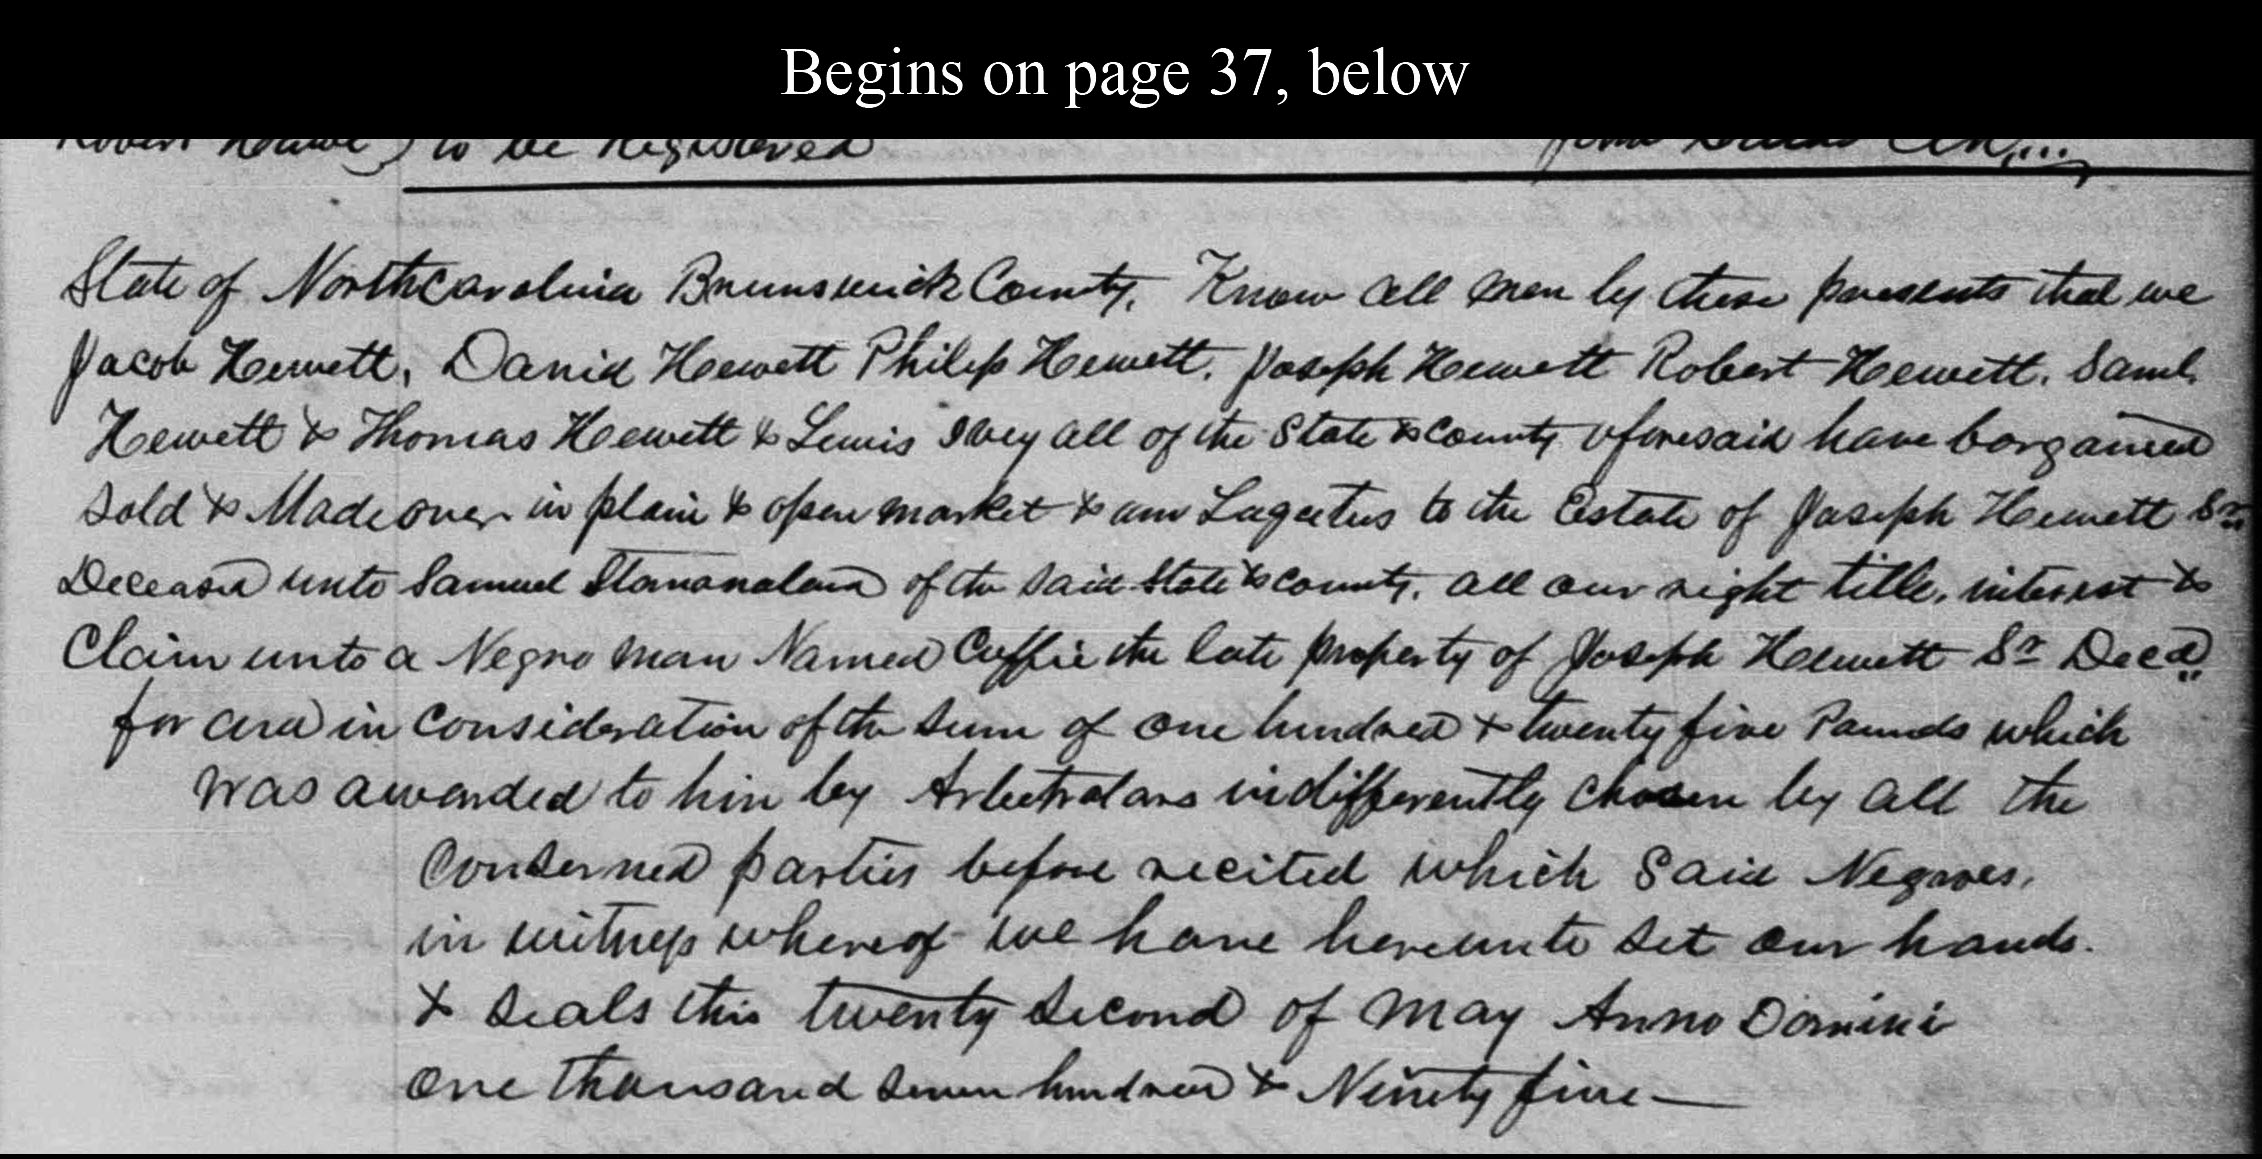 Begins on page 37, below
to be Registered
State of Northcarolina Brunswick County. Know all men by these presents that we
Jacob Hewett, David Hewett Philip Hewett, Joseph Hewett Robert Hewett, Saml.
Hewett & Thomas Hewett & Lewis Ivey all of the State & County oforesaid have borgained
sold & Made over in plain & open market & am Lagetus to the Estate of Joseph Hewett Sr
Deceased unto Samuel of the said State & county, all our right title, interest &
Claim unto a Negro man Named Cuffie the late property of Joseph Hewett Sr Decd
for and in Consideration of the sum of one hundred & twenty five Pounds which
was awarded to him by Arbetrators indifferently chosen by all the
Conserned parties before recited which Said Negroes,
in witness whereof we have hereunto set our hands.
& seals this twenty second of May Anno Domini
one thousand seven hundred & Ninety five